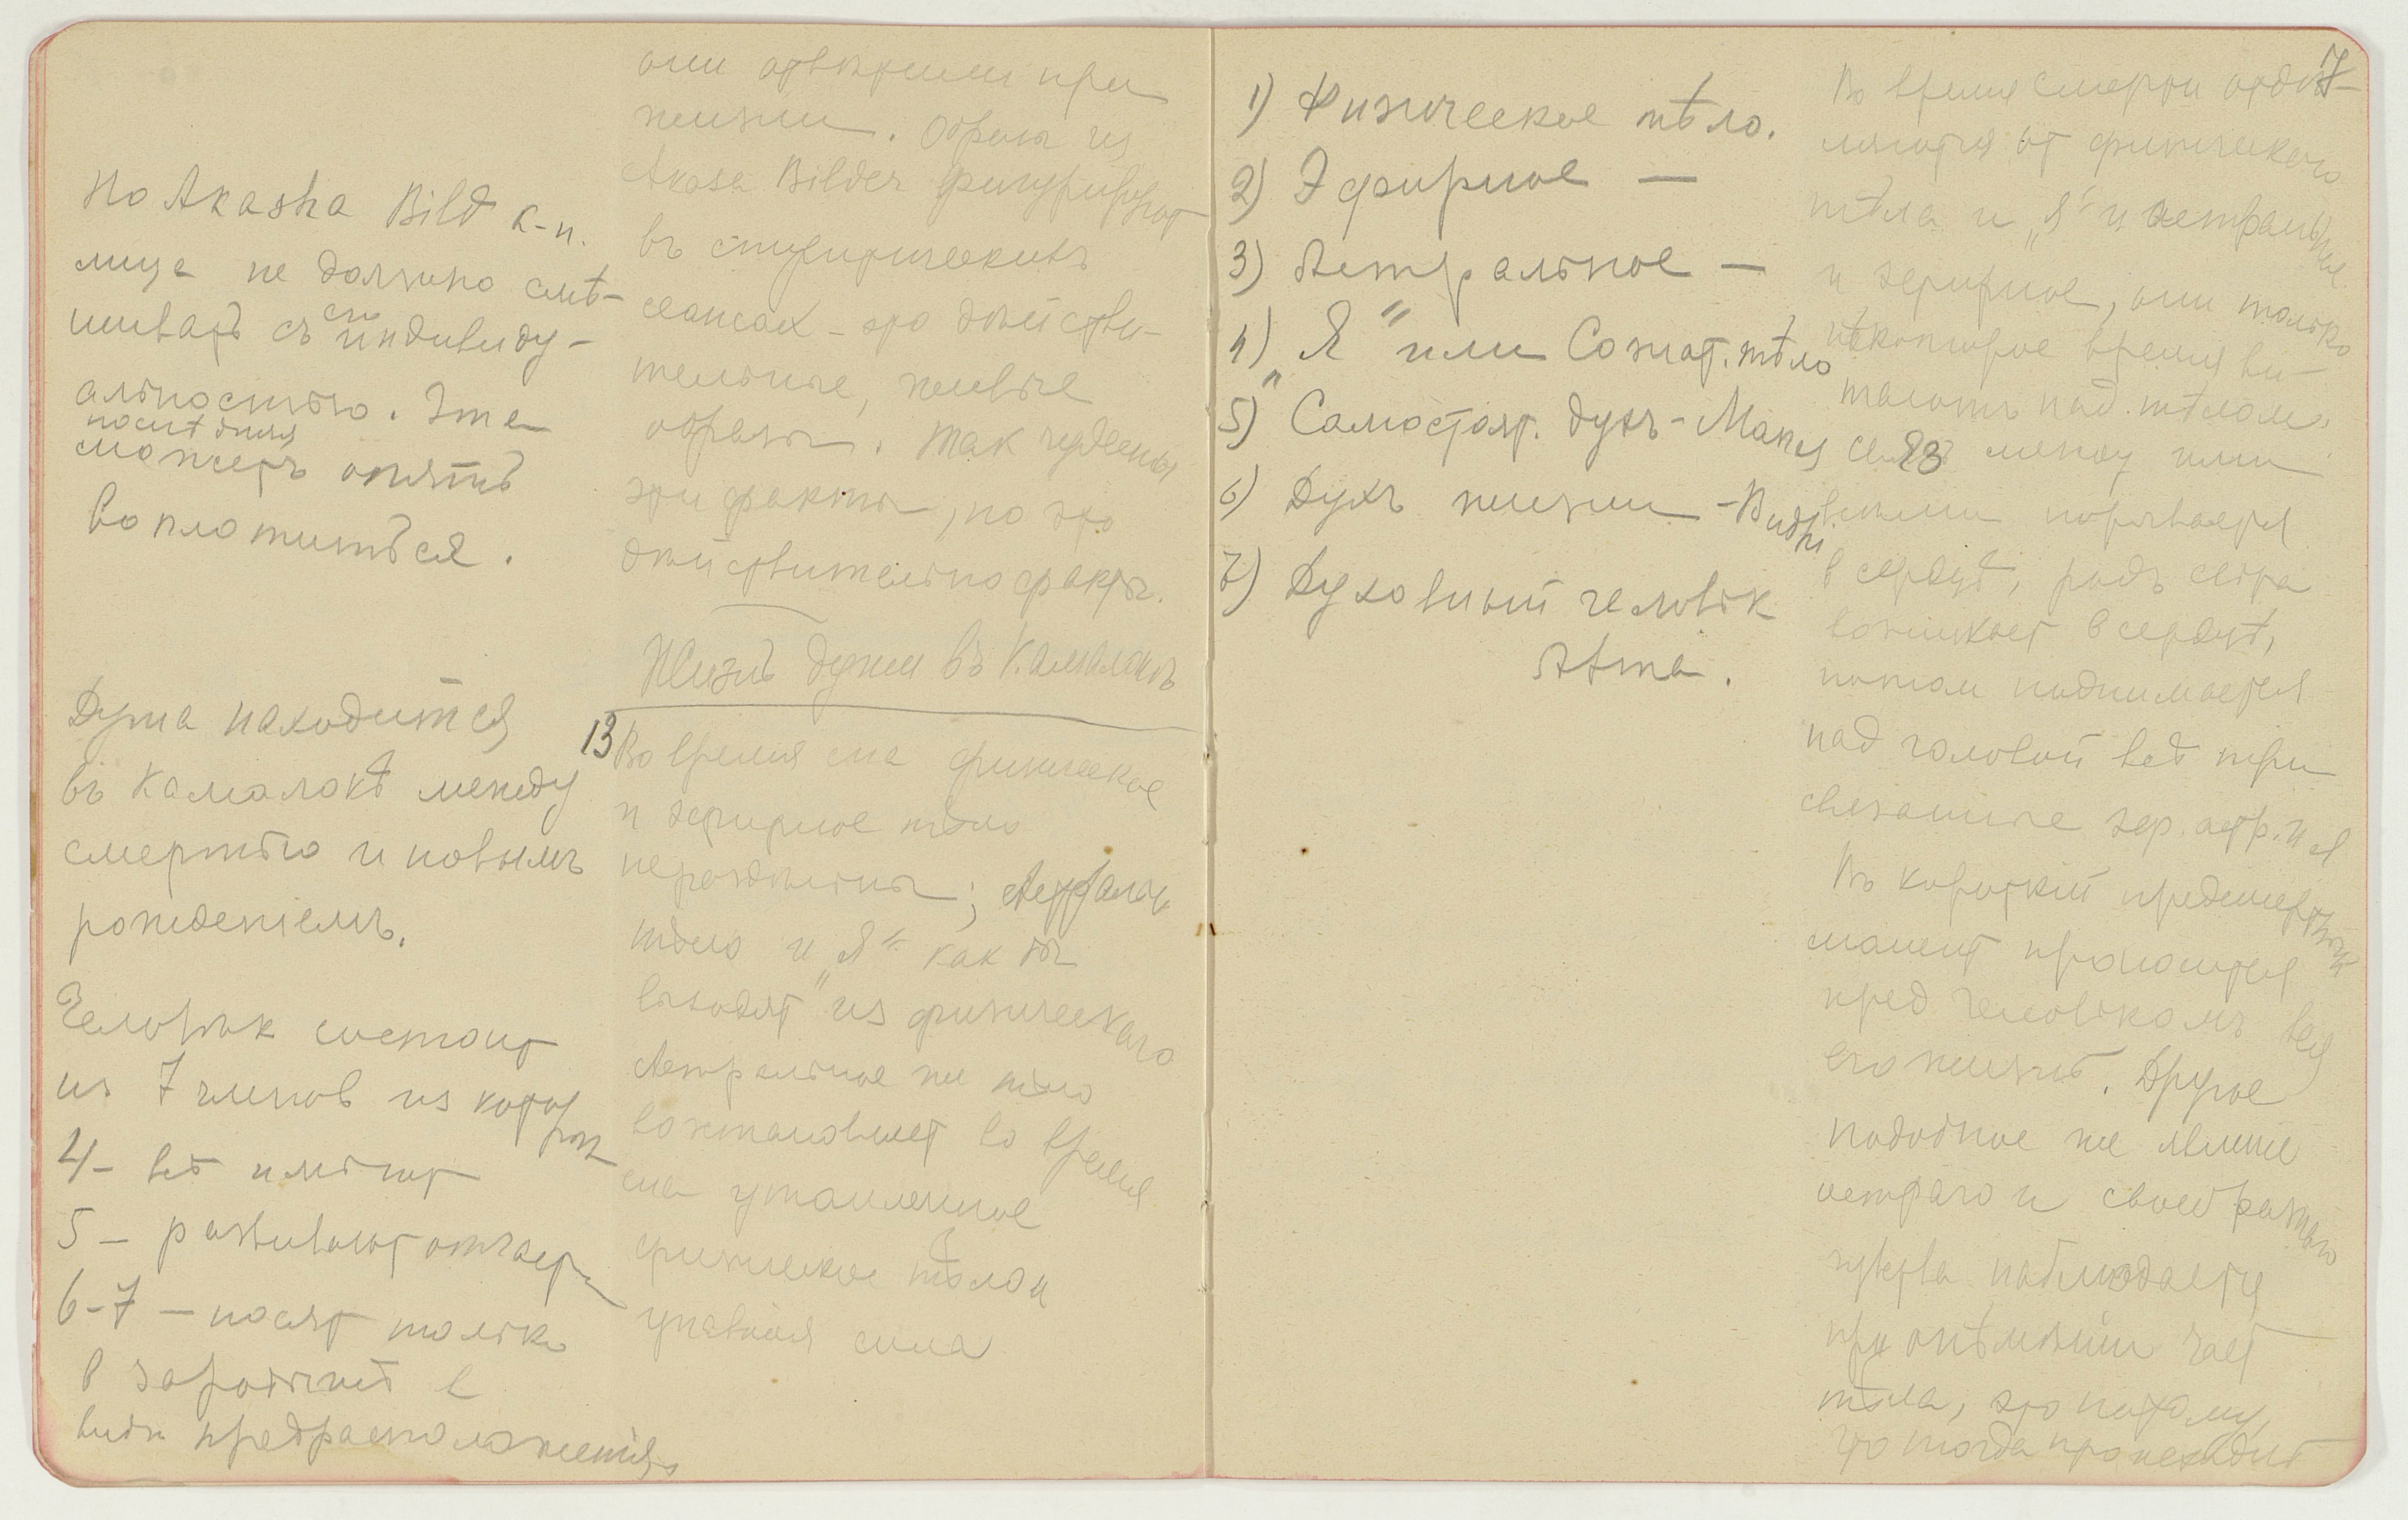 Но Akasha Bild к-н.
лица не должно смѣ-
шивать съ его индивиду-
альностью. Эта
послѣдняя
можетъ опять
воплотиться.
Душа находится
въ Камалокѣ между
смертью и новымъ
рожденіемъ.
Человѣк состоит
из 7 членов из которых
4 – всѣ имѣют
5 – развивают отчасти
6-7 – носят только
в зародышѣ в
видѣ предрасположенія
они отвѣтили при
жизни. Образы из
Akasa Bilder фигурируют
въ спиритических
сеансах – это дѣйстви-
тельные, живые
образы. Так чудесны
эти факты, но это
дѣйствительно факты.
Жизнь души въ Камалокѣ
13 Во время сна физическое
и эфирное тѣло
нераздѣльны; Астральн.
тѣло и „Я“ как бы
выходят из физическаго
Астральное же тѣло
возстановляет во время
сна утомленное
физическое тѣло и
сила
7
1) Физическое тѣло.
2) Эфирное —
3) Астральное —
4) „Я“ или Сознат. тѣло
5) Самостоят. духъ – Манас
6) Духъ жизни – Budhi
7) Духовный человѣк
Atma.
Во время смерти отдѣ-
ляются от физическаго
тѣла и „Я“ и астральное
и эфирное, они только
нѣкоторое время ви-
тают над тѣлом.
связь между ними
порывается
в сердцѣ, родъ свѣта
возникает в сердцѣ,
потом поднимается
над головой всѣ три
связанные эф. астр. и я
Въ короткій предсмертный
момент проносится
пред человѣкомъ вся
его жизнь. Другое
подобное же явленіе
остраго и своеобразнаго
чувства наблюдается
при онѣмѣніи част.
тѣла, это потому,
что тогда происходит